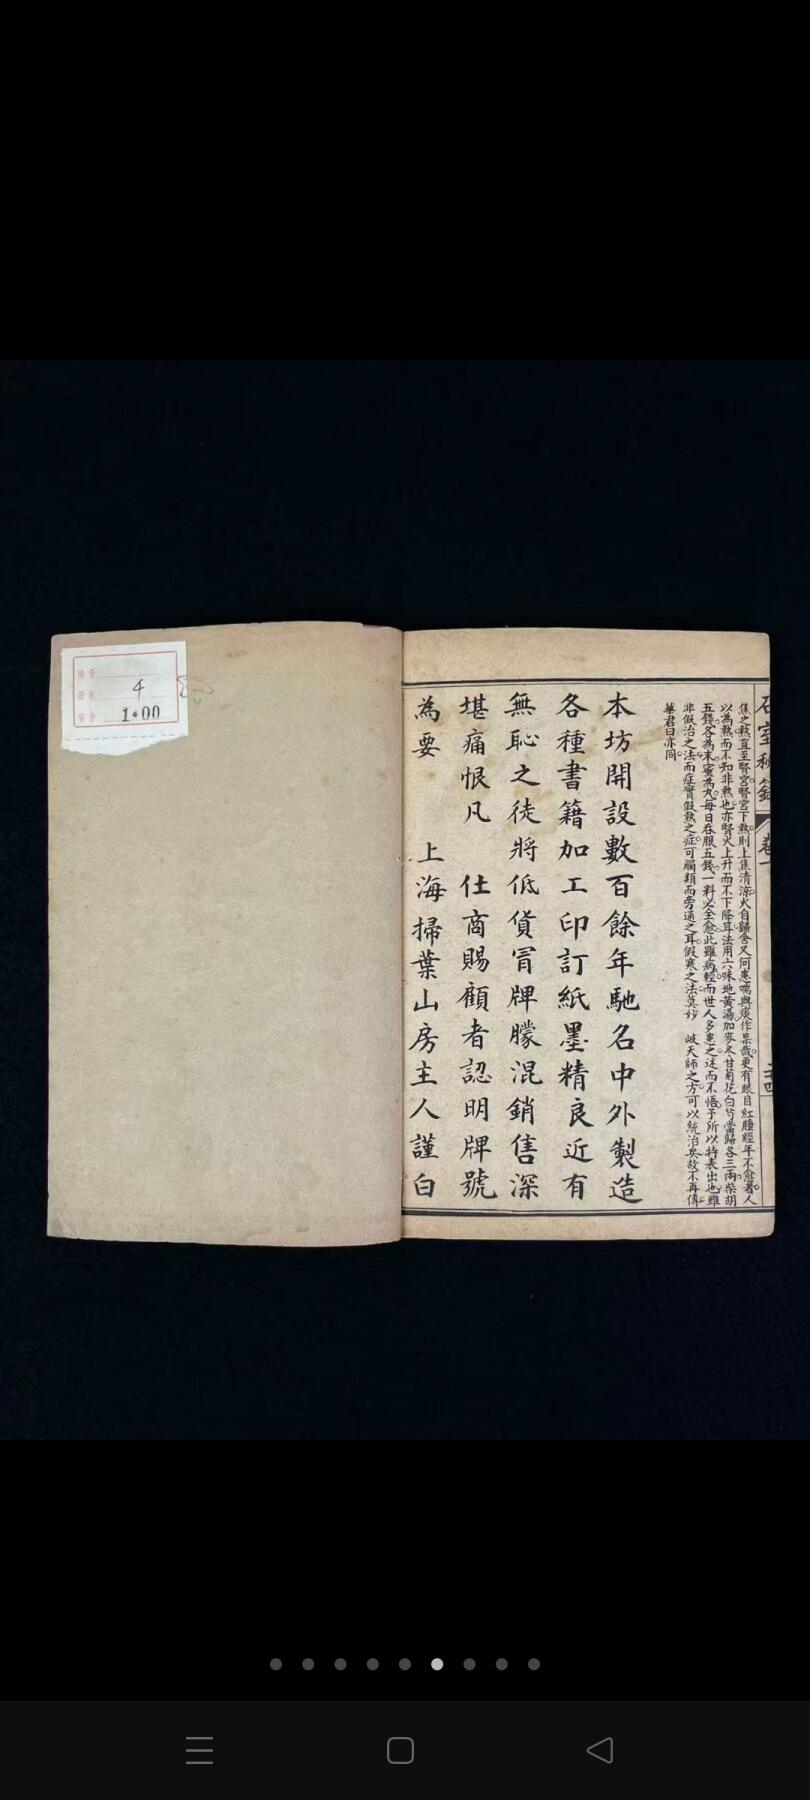 石室秘錄
卷一
焦之熱直至腎宮腎宮下熱則上焦清涼火自歸舍又何患喘與痰作祟哉更有眼目紅腫經年不愈者人
以為熱而不知非熱也亦腎火上升而不下降耳法用六味地黃湯加麥冬甘菊花白芍當歸各三兩柴胡
五錢各為末蜜為丸每日吞服五錢一料必全愈此雖病輕而世人多患之迷而不悟予所以特表出也雖
非假治之法而症實假熱之症可觸類而旁通之耳假寒之法莫妙 岐天師之方可以統治矣故不再傳
華君曰亦同
本坊開設數百餘年馳名中外製造
各種書籍加工印訂紙墨精良近有
無恥之徒將低貨冒牌朦混銷售深
堪痛恨凡 仕商賜顧者認明牌號
為要 上海掃葉山房主人謹白
4
1.00